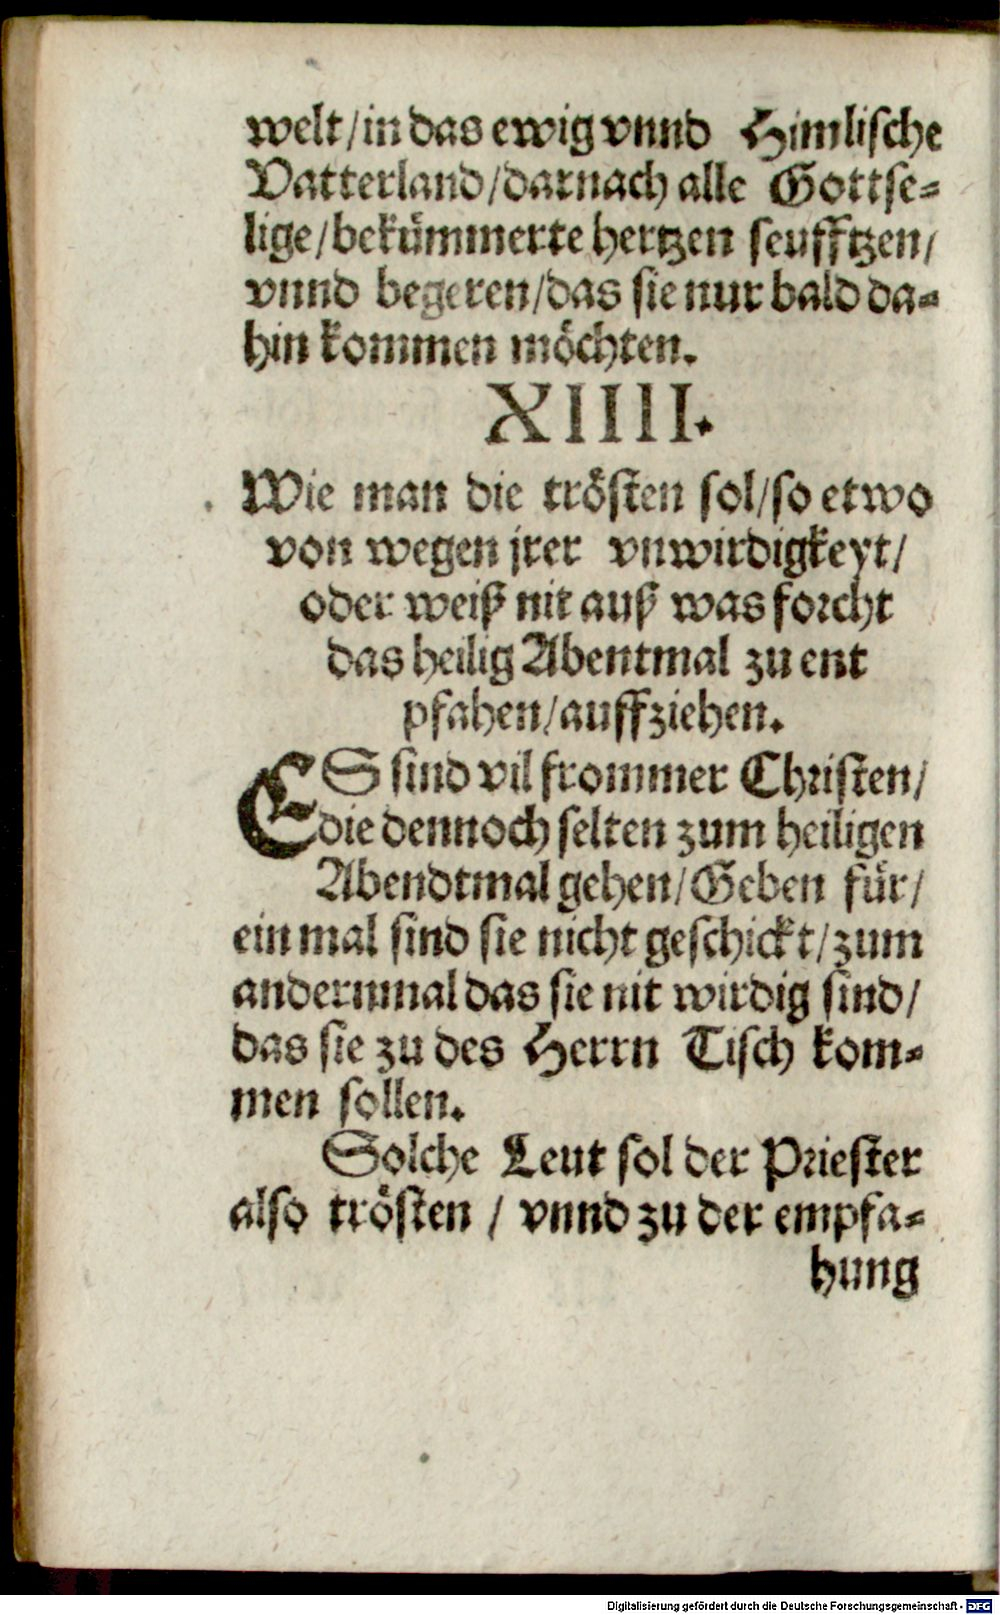 welt/in das ewig vnnd Himlische
Vatterland/darnach alle Gottse-
lige/bekümmerte hertzen seufftzen/
vnnd begeren/das sie nur bald da-
hin kommen möchten.
XIIII.
Wie man die trösten sol/so etwo
von wegen jrer vnwirdigkeyt/
oder weiß nit auß was forcht
das heilig Abentmal zu ent
pfahen/auffziehen.
ES sind vil frommer Christen/
die dennoch selten zum heiligen
Abendtmal gehen/Geben für/
ein mal sind sie nicht geschickt/zum
andermmal das sie nit wirdig sind/
das sie zu des Herrn Tisch kom-
men sollen.
Solche Leut sol der Priester
also trösten / vnnd zu der empfa-
hung
Digitalisierung gefördert durch die Deutsche Forschungsgemeinschaft - DFG